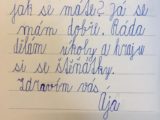 jak se máte? Já se
mám dobře. Ráda
dělám úkoly a hraju
si se štěňátky.
Zdravím vás,
Ája